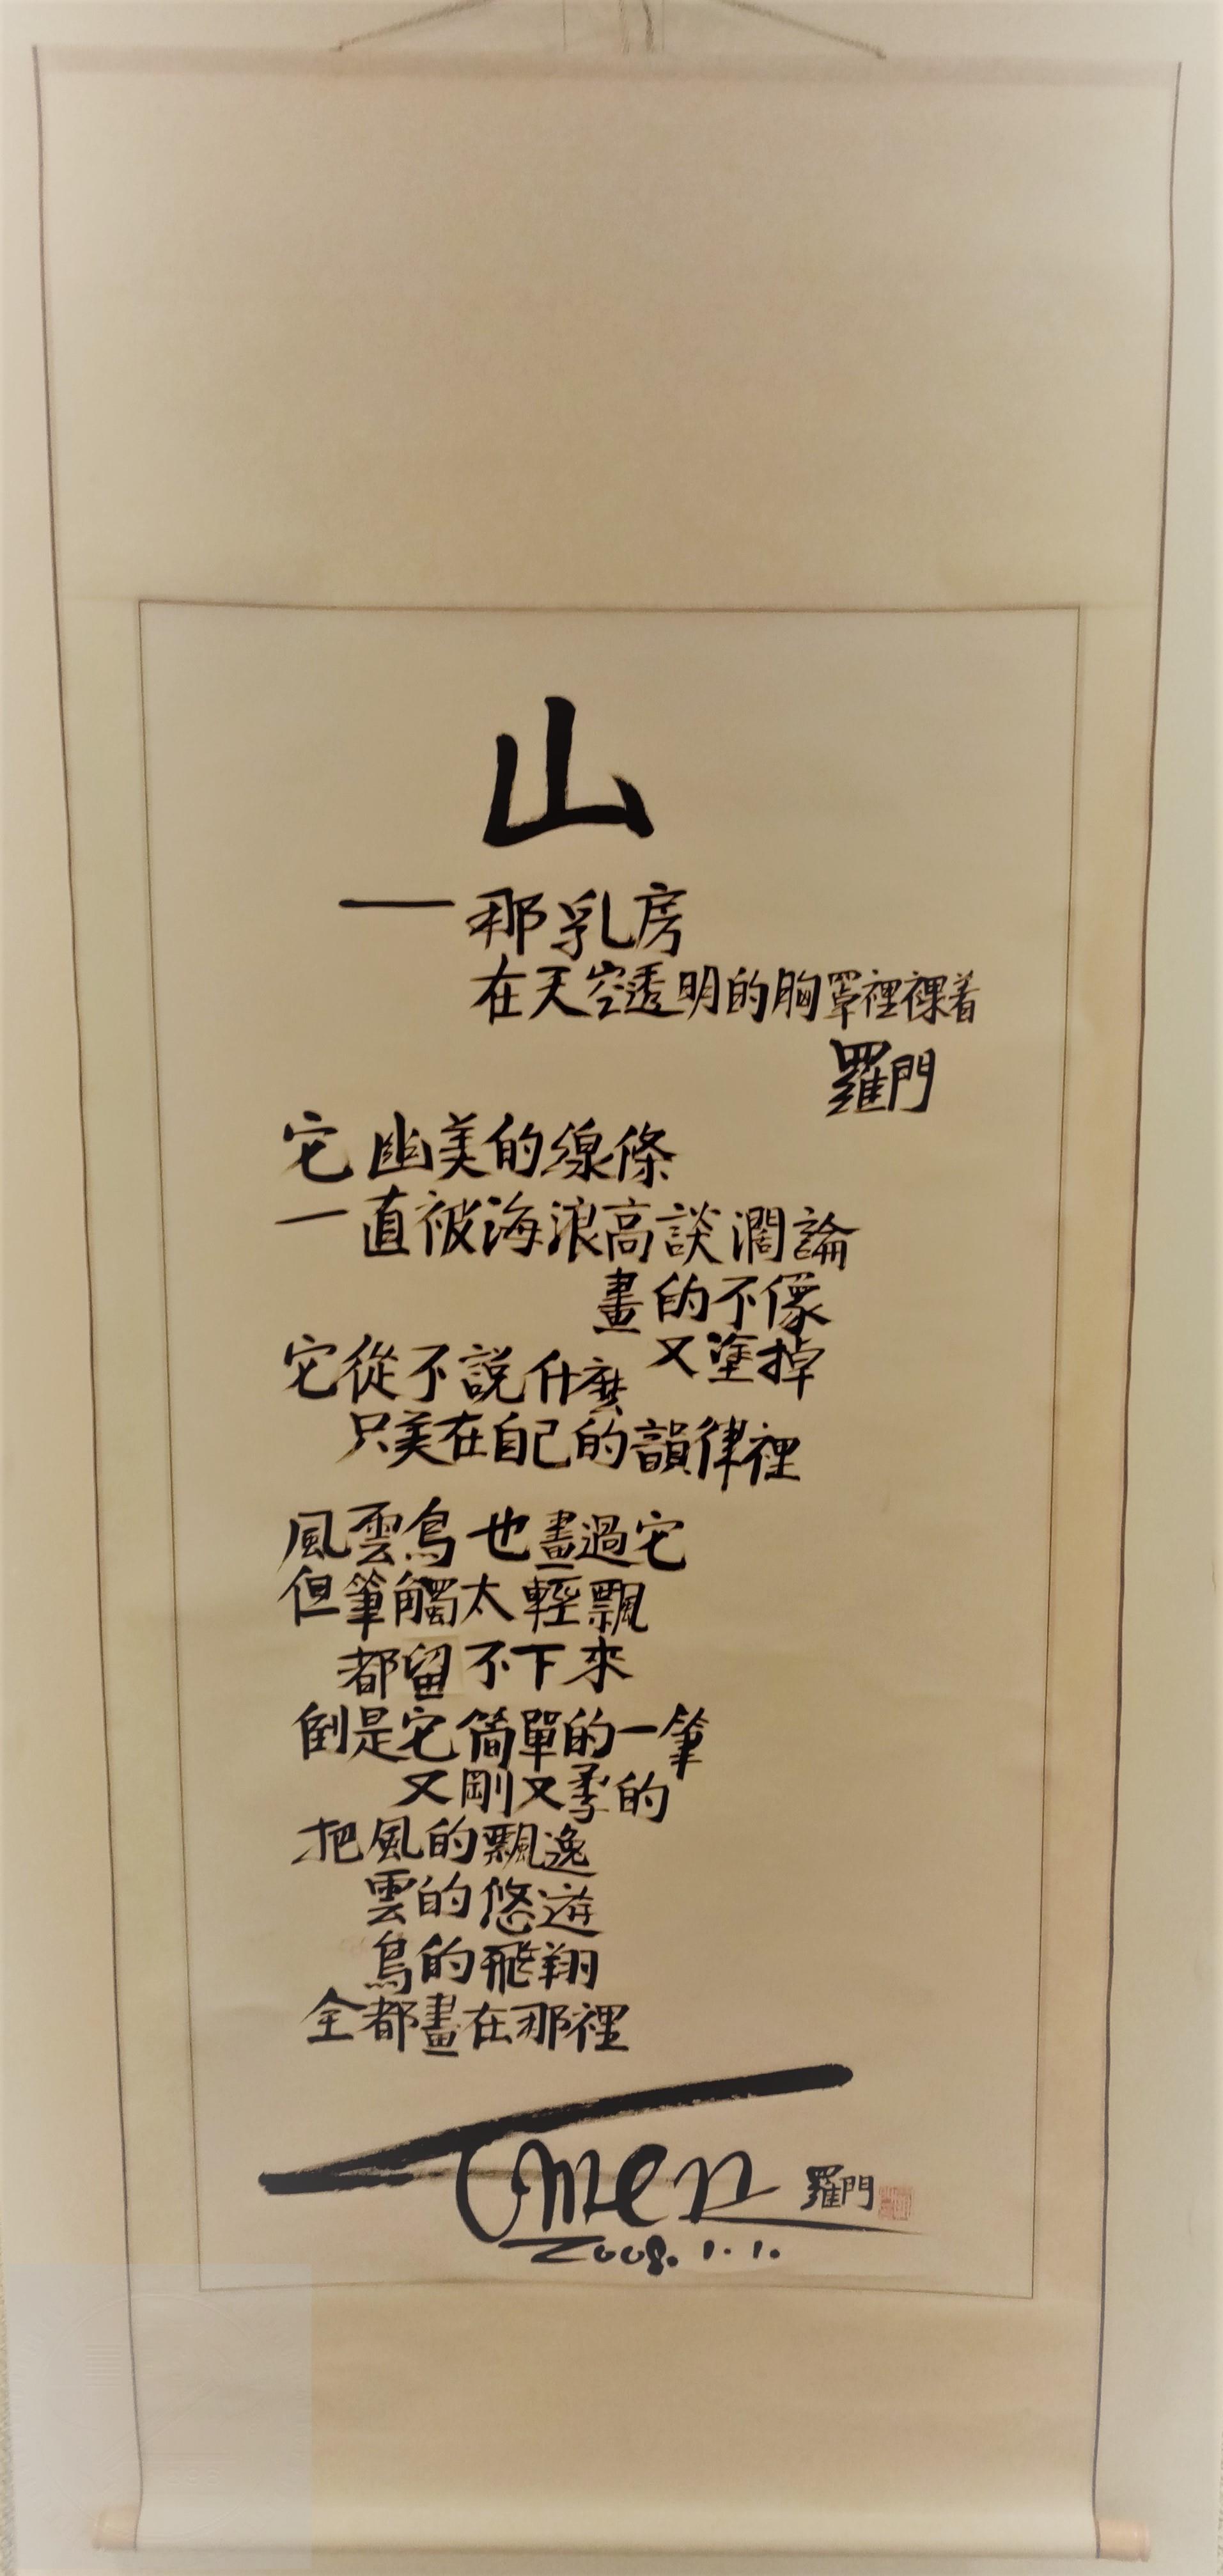 山
——那乳房
在天空透明的胸罩裡裸着
羅門
它幽美的線條
一直被海浪高談濶論
畫的不像
又塗掉
它從不説什麽
只美在自己的韻律裡
風雲鳥也畫過它
但筆觸太輕飄
都留不下來
倒是它简單的一筆
又剛又柔的
把風的飄逸
雲的悠遊
鳥的飛翔
全都畫在那裡
羅門
2008.1.1.